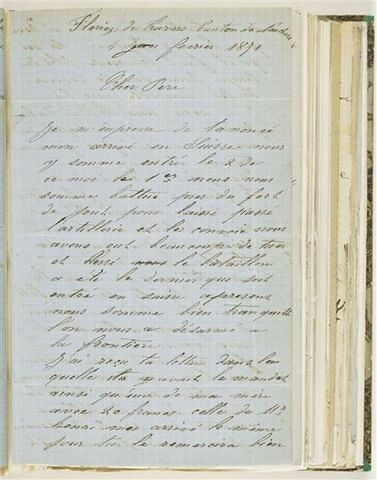 de travers canton de
4 février 1871
Cher Pere
Je m'empresse de
mon arrivé en Suisse nous
y somme entré le 2 de
ce mois le 1er nous nous
somme battue pres du fort
de pour laissé passé
l'artillerie et les convoie nous
avons eut beaucoup de tués
et nous le bataillon
a été le dernier qui soit
entré en suisse apresent
nous somme bien tranquille
l'on nous a désarmé a
la frontiere
J'ai reçu ta lettre dans la
quelle il y avait le mandat
ainsi qu'une de ma mère
avec 20 francs celle de Mr
henri mes arrivé le même
jour tu le remercira bien